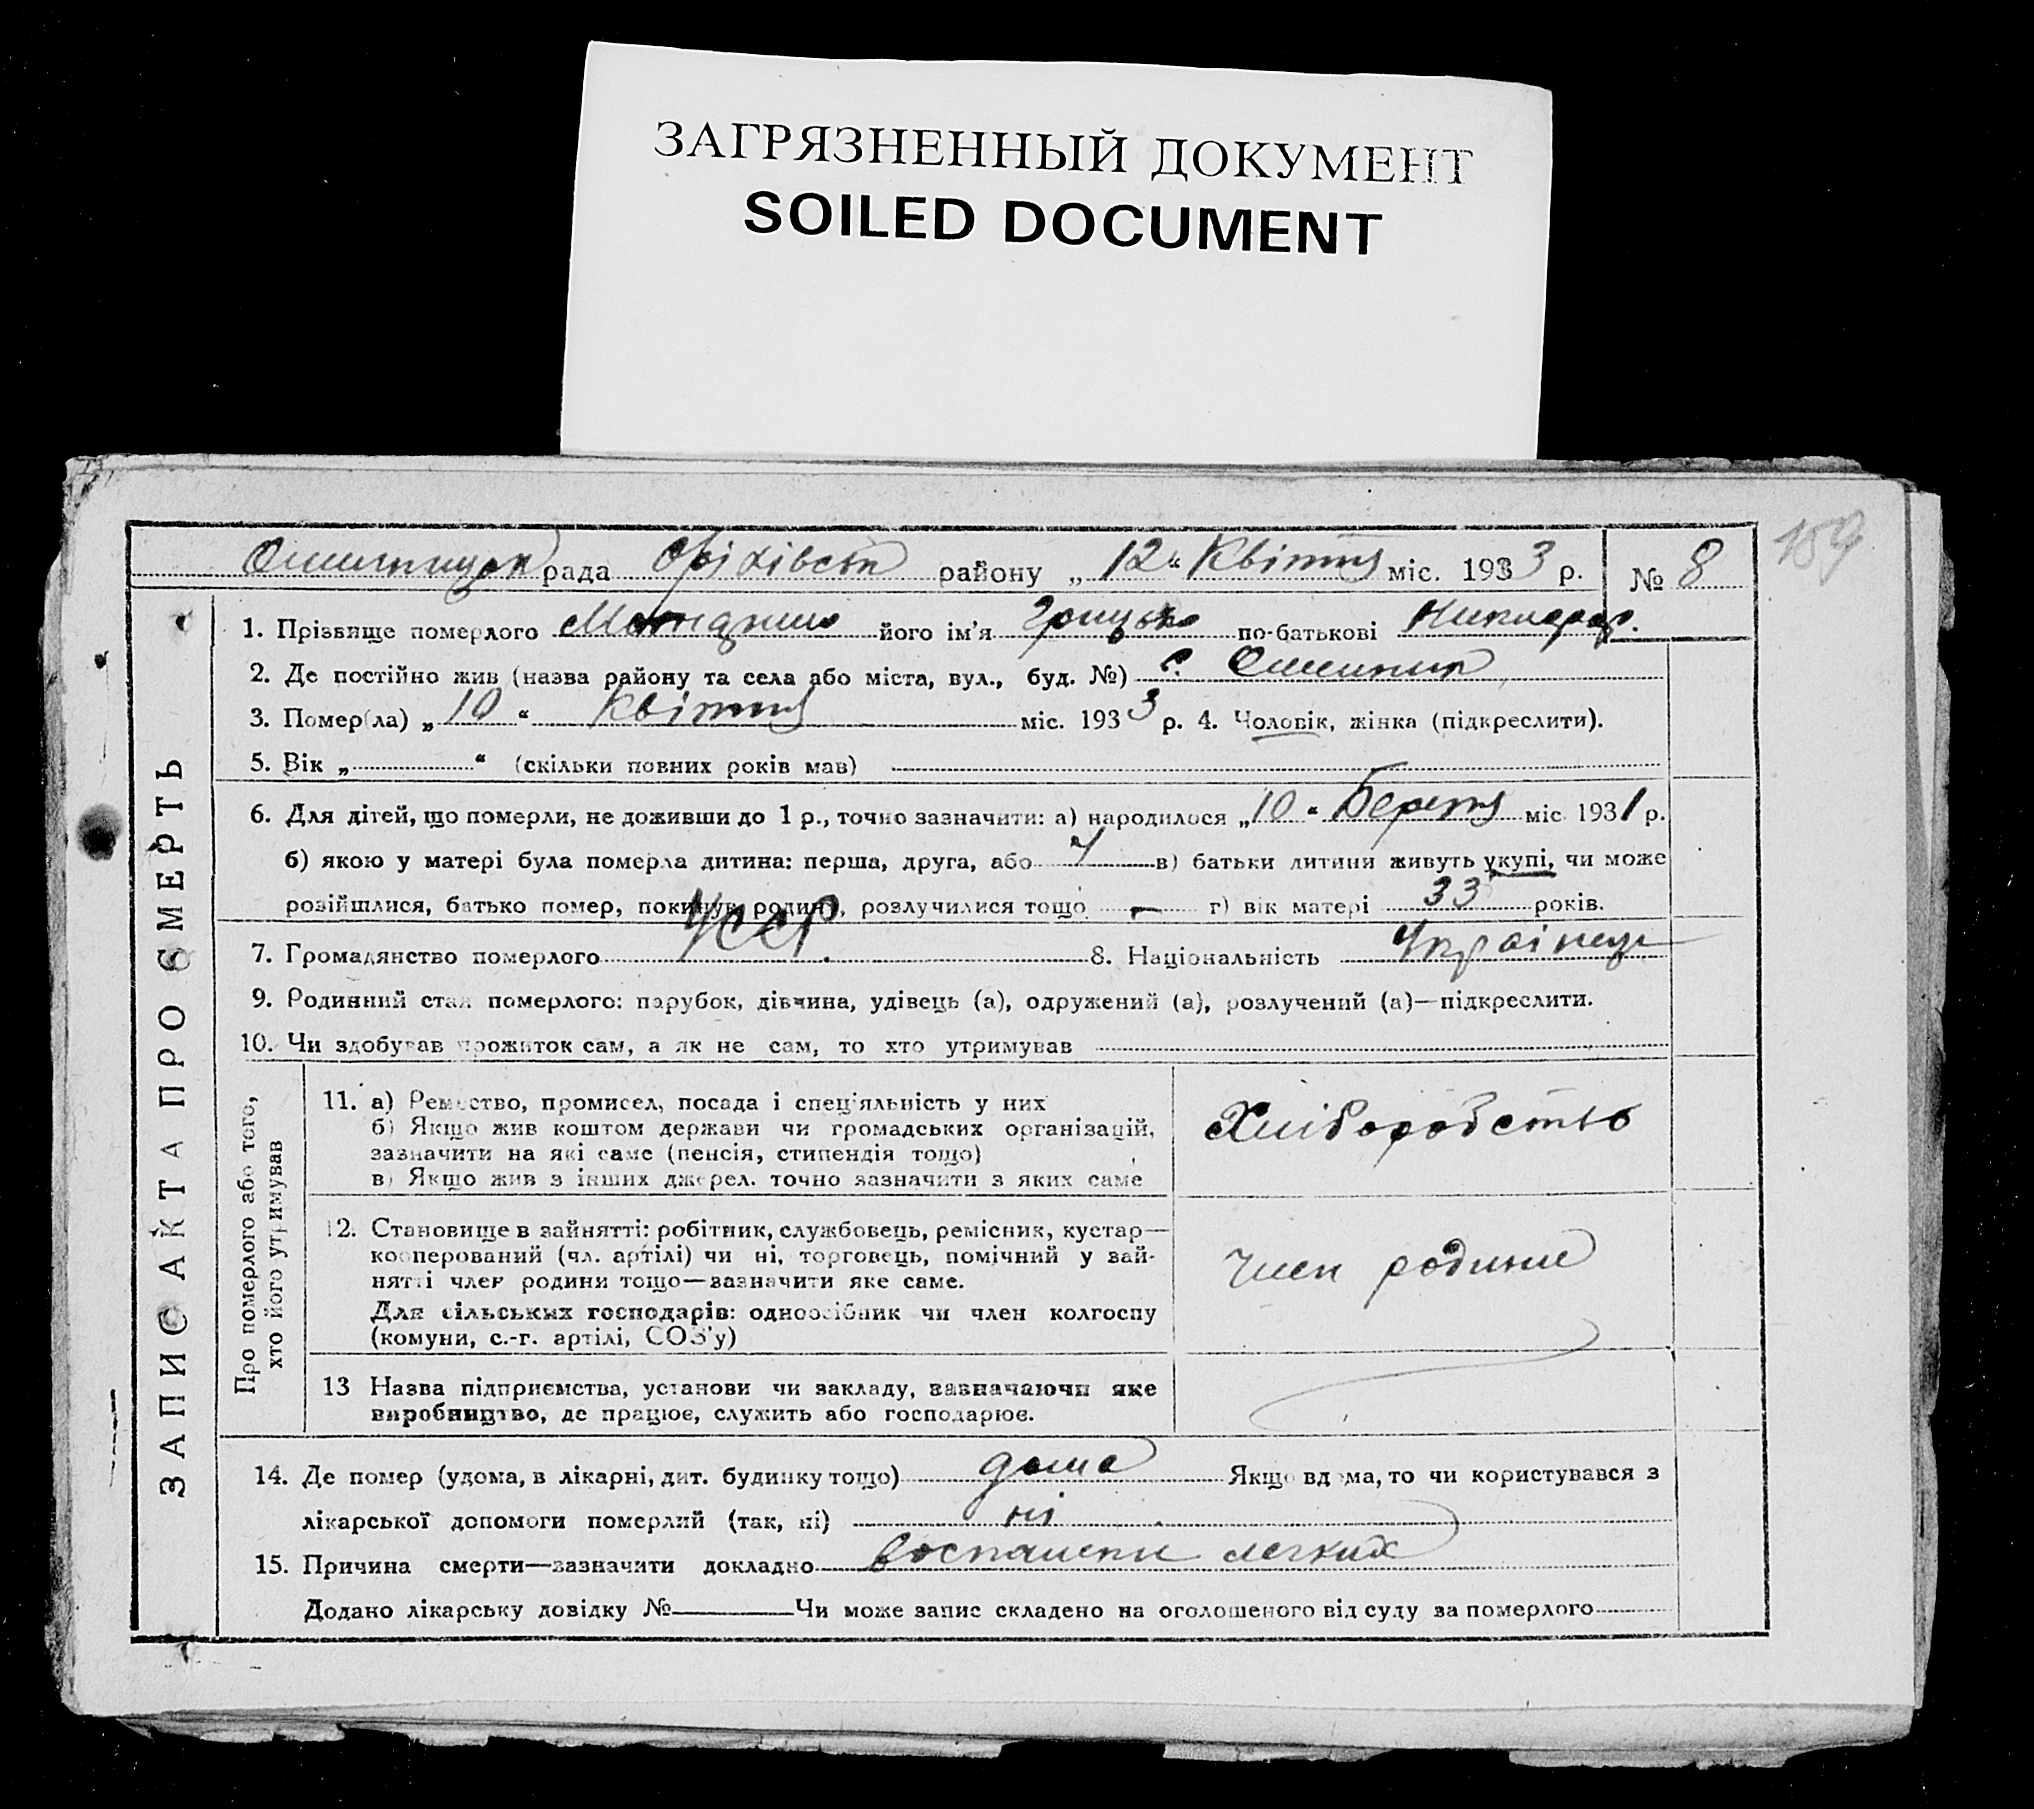 ЗАГРЯЗНЕННЫЙ ДОКУМЕНТ
SOILED DOCUMENT
159
рада Оріхівськ району „12“ Квітня міс. 1933 р. № 8
ЗАПИС АКТА ПРО СМЕРТЬ
1. Прізвище померлого його ім'я Грицько по-батькові
2. Де постійно жив (назва району та села або міста, вул., буд. №) с.
3. Помер(ла) „10“ Квітня міс. 1933 р. 4. Чоловік, жінка (підкреслити).
5. Вік „ “ (скільки повних років мав)
6. Для дітей, що померли, не доживши до 1 р., точно зазначити: а) народилося „10“ Березня міс 1931 р.
б) якою у матері була померла дитина: перша, друга, або 4 в) батьки дитини живуть укупі, чи може
розійшлися, батько помер, покинув родину, розлучилися тощо — г) вік матері 33 років.
7. Громадянство померлого УССР. 8. Національність Українець
9. Родинний стан померлого: парубок, дівчина, удівець (а), одружений (а), розлучений (а)—підкреслити.
10. Чи здобував прожиток сам, а як не сам, то хто утримував
Про померлого або того,
хто його утримував
11. а) Ремество, промисел, посада і спец'яльність у них
б) Якщо жив коштом держави чи громадських організацій,
зазначити на які саме (пенсія, стипендія тощо)
в) Якщо жив з інших джерел. точно зазначити з яких саме
Хліборобство
12. Становище в зайнятті: робітник, службовець, ремісник, кустар—
кооперований (чл. артілі) чи ні, торговець, помічний у зай-
нятті член родини тощо—зазначити яке саме.
Для сільських господарів: одноосібник чи член колгоспу
(комуни, с.-г. артілі, СОЗ'у)
Член родини
13 Назва підприємства, установи чи закладу, зазначаючи яке
виробництво, де працює, служить або господарює.
14. Де помер (удома, в лікарні, дит. будинку тощо) дома Якщо вдома, то чи користувався з
лікарської допомоги померлий (так, ні) ні
15. Причина смерти—зазначити докладно воспалени легких
Додано лікарську довідку № Чи може запис складено на оголошеного від суду за померлого